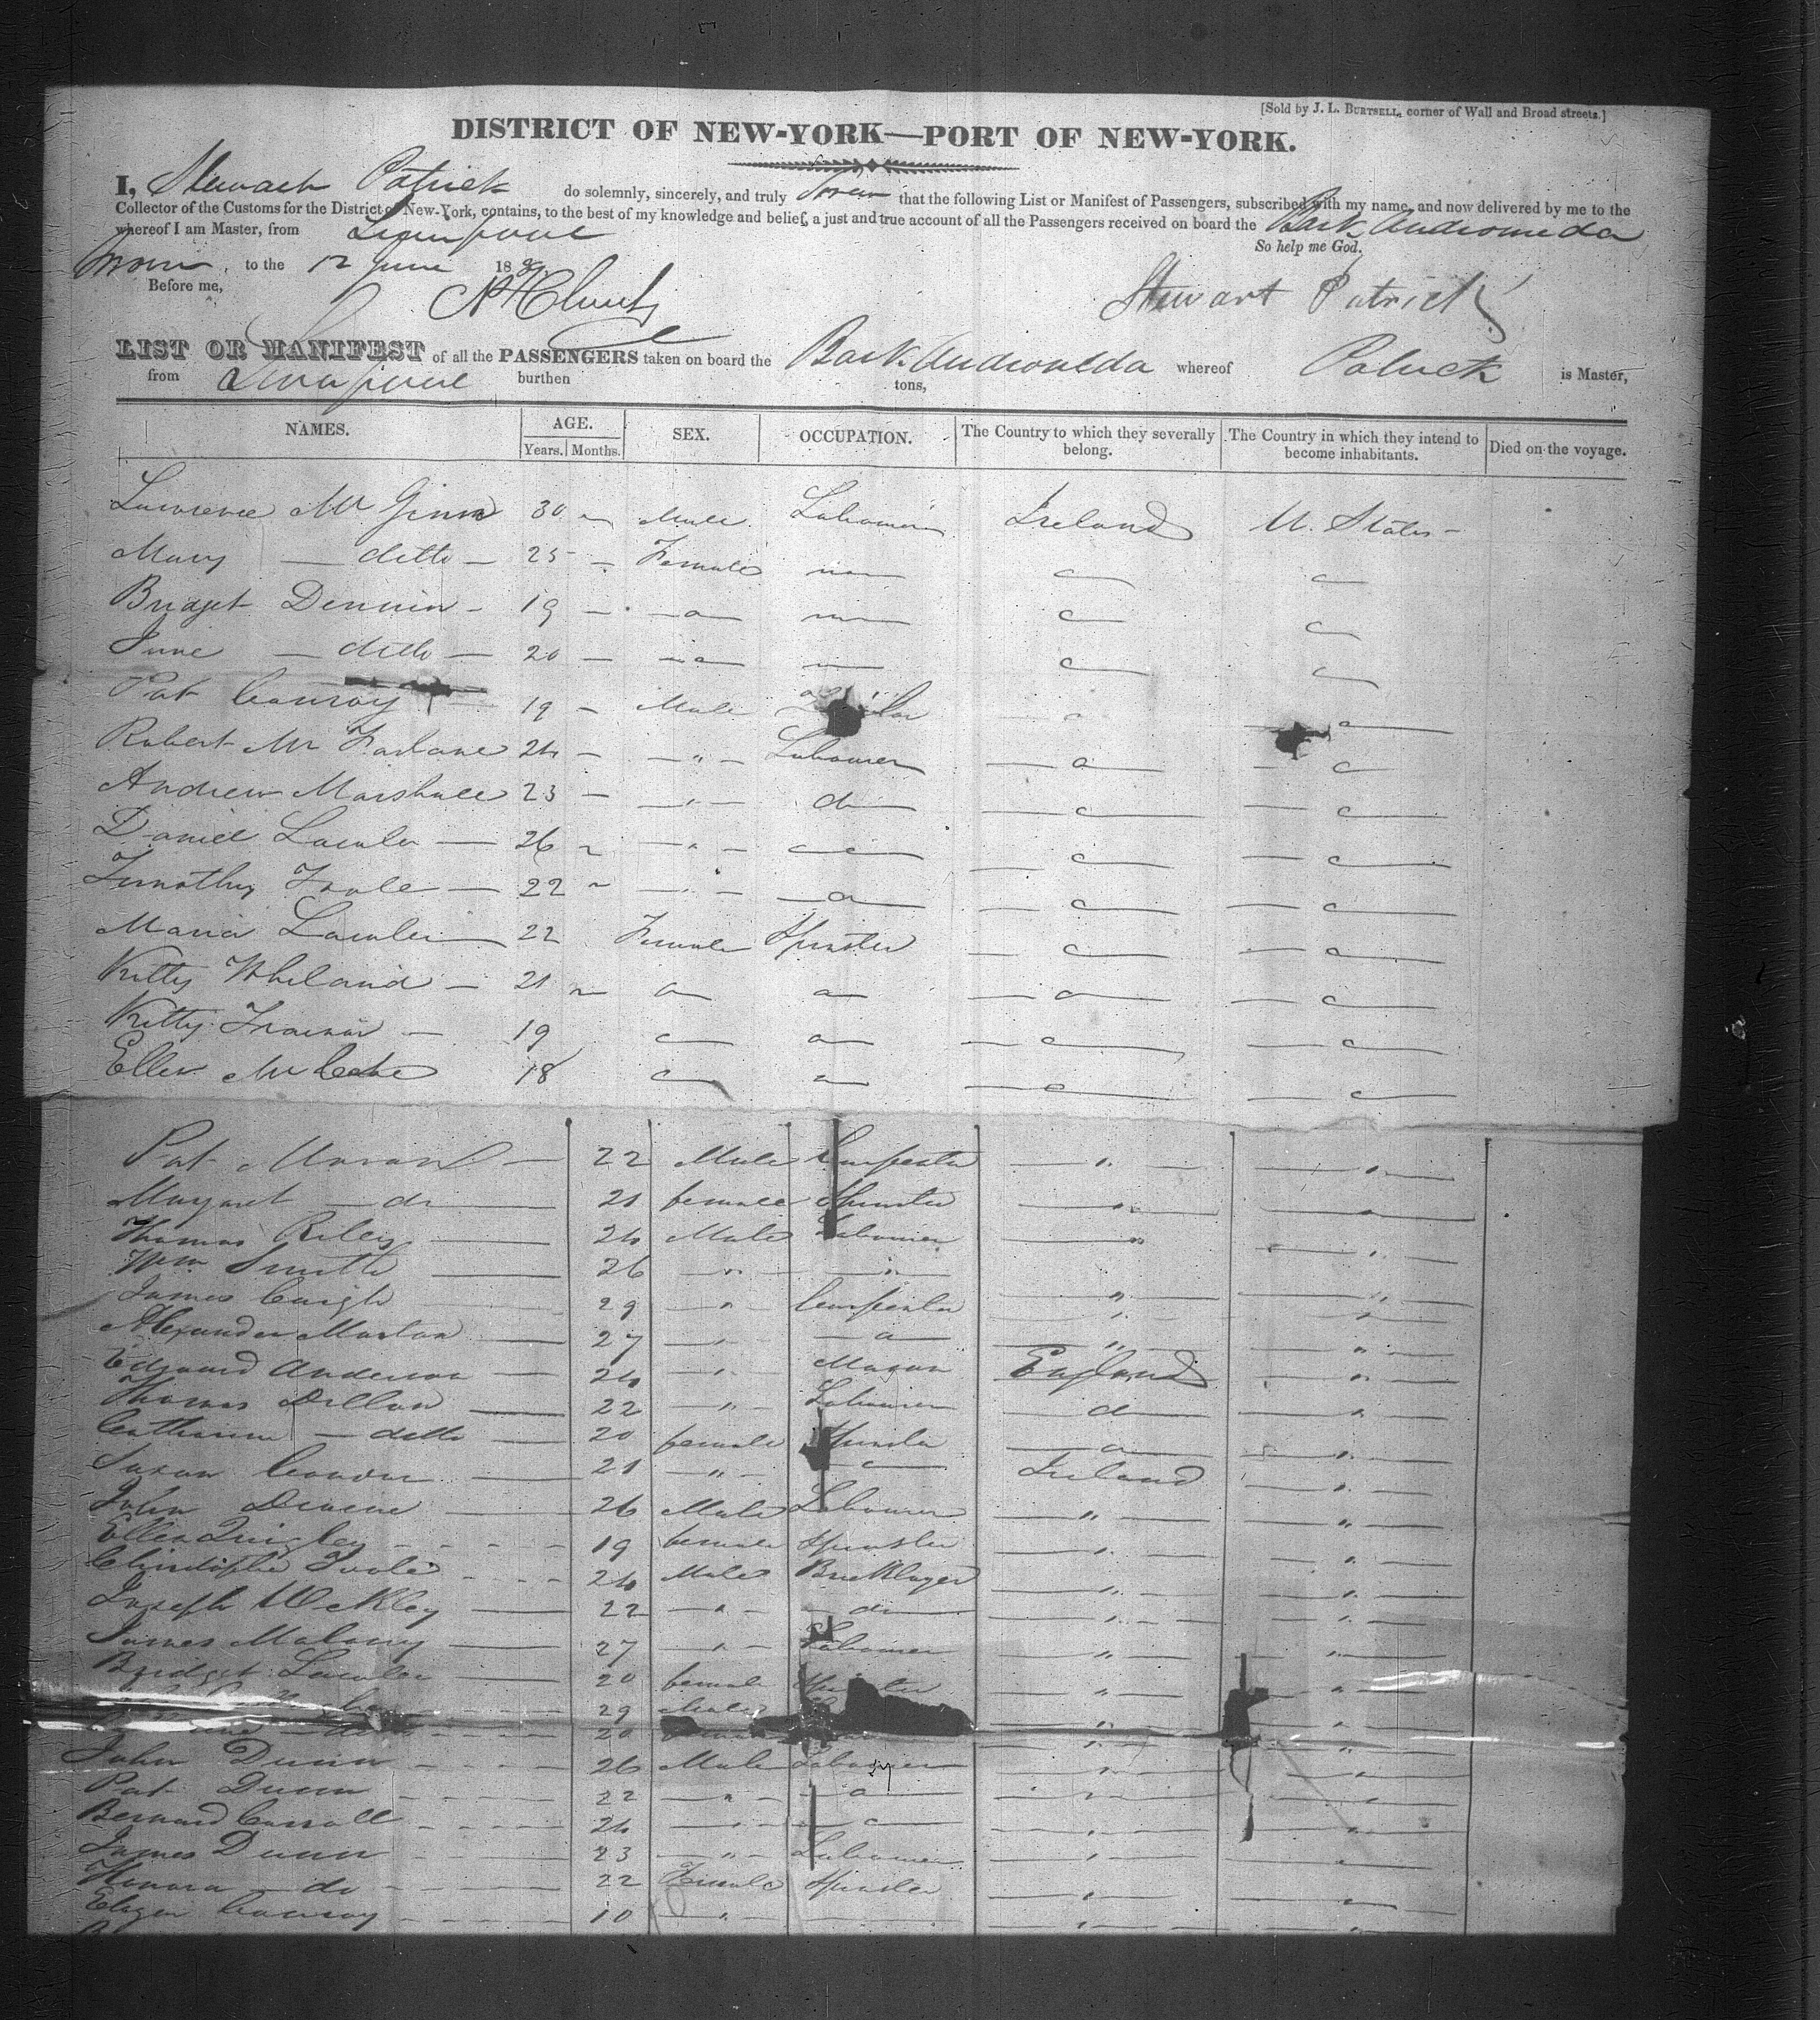 [Sold by J. L. BURTSELL, corner of Wall and Broad streets.]
DISTRICT OF NEW-YORK—PORT OF NEW-YORK.
I, Stewart Patrick do solemnly, sincerely, and truly Swear that the following List or Manifest of Passengers, subscribed with my name, and now delivered by me to the
Collector of the Customs for the District of New-York, contains, to the best of my knowledge and belief, a just and true account of all the Passengers received on board the Bark Andromeda
whereof I am Master, from Liverpool
So help me God.
Sworn to the 12 June 18
Before me,
Stewart Patrick
LIST OR MANIFEST of all the PASSENGERS taken on board the Bark Andromeda whereof Patrick is Master,
from Liverpool burthen tons,
NAMES. AGE. SEX. OCCUPATION. The Country to which they severally belong. The Country in which they intend to become inhabitants. Died on the voyage.
Years. Months.
Lawrence Mc Ginn 30 Male Labourer Ireland U. States
Mary — ditto — 25 Female
Bridget Dennin 19
Jane — ditto — 20
Pat Conroy 19 Male
Robert Mc Farlane 24 " Labourer
Andrew Marshall 23 " do
Daniel Lawler 26 "
Timothy Toole 22 "
Maria Lawler 22 Female Spinster
Kitty Wheland 21
Kitty 19
Ellen Mc Cabe 18
Pat Moran 22 Male Carpenter " "
Margaret — do 21 female Spinster " "
Thomas Riley 24 Male Labourer " "
Wm Smith 26 " " " "
James 29 " Carpenter " "
Alexander 27 " " "
Edward Anderson 24 " Mason England "
Thomas Dillon 22 " Labourer do "
Catharine — ditto 20 female Spinster "
Susan 21 " Ireland "
John 26 Male Labourer " "
Ellen Quigley 19 female Spinster " "
Christopher Toole 24 Male Bricklayer " "
Joseph 22 " do " "
James Malony 27 " Labourer " "
Bridget Lawler 20 female Spinster " "
29 Male " "
20 " "
John Dunn 26 Male Labourer " "
Pat Dunn 22 " "
Bernard Carroll 24 " " "
James Dunn 23 " Labourer "
Honora — do 22 Female Spinster "
Conroy 10 " "